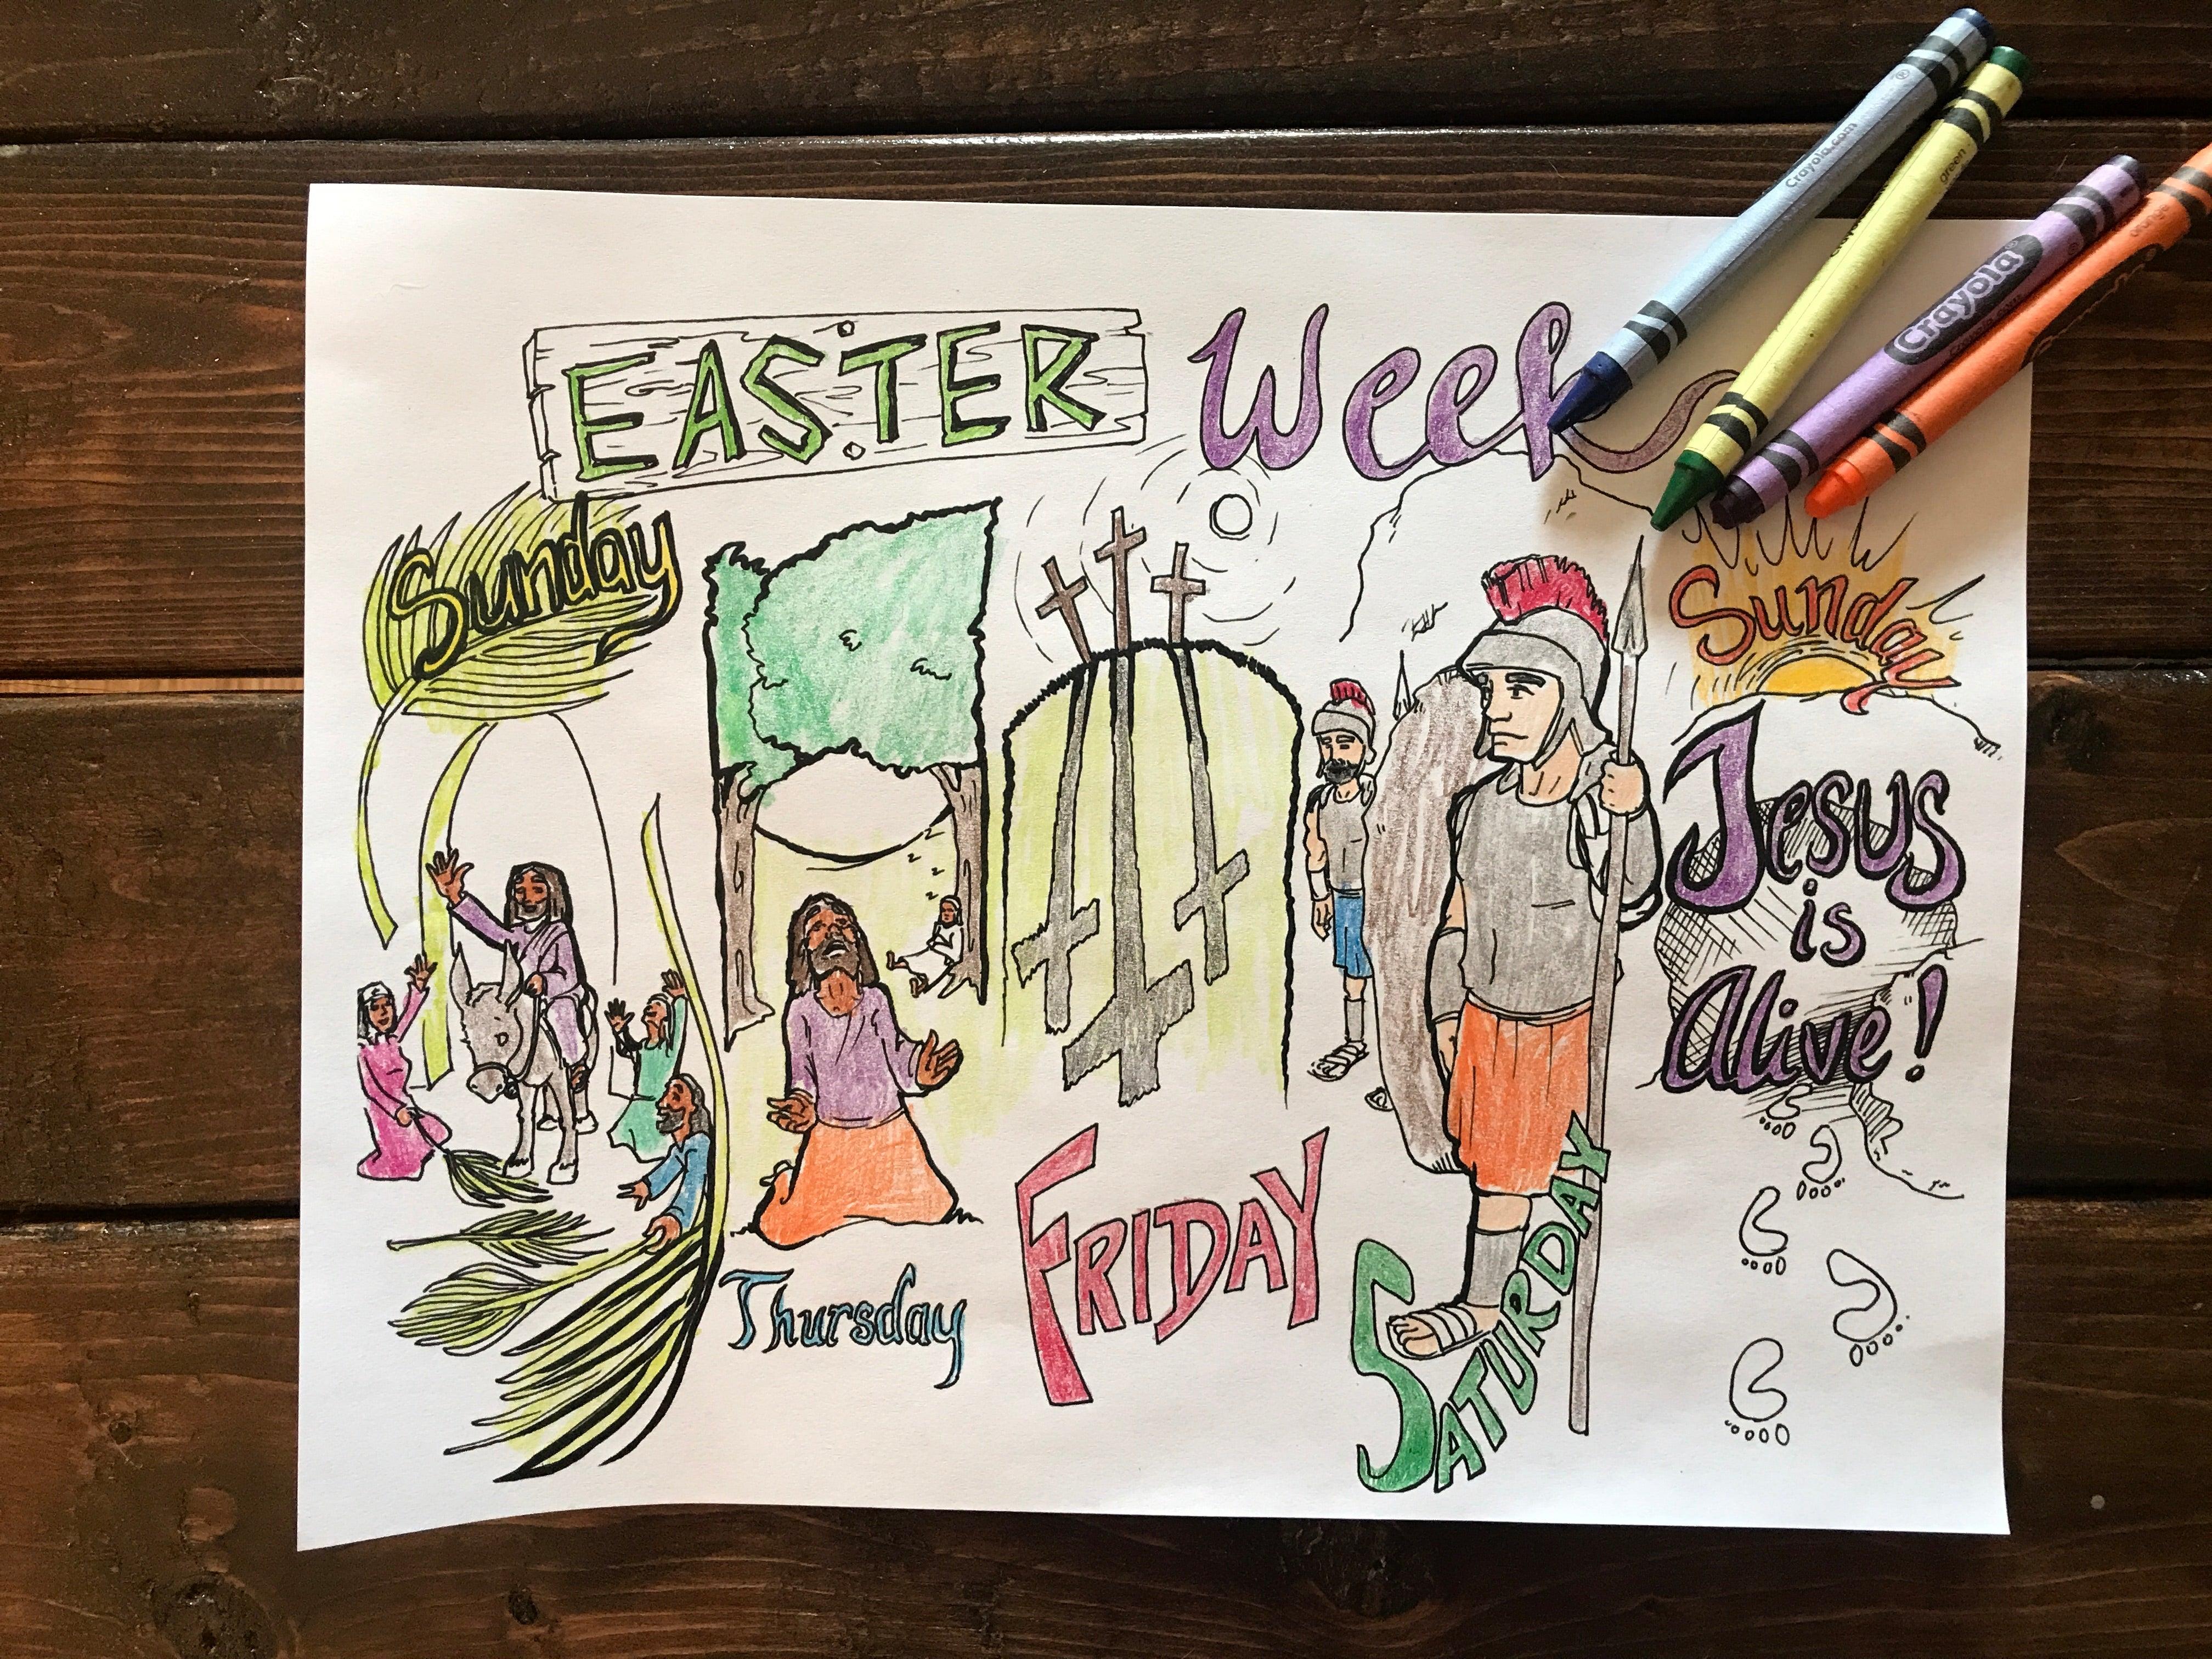 EASTER Week
Sunday
Thursday
FRIDAY
SATURDAY
Sunday
Jesus
is
Alive!
Crayola.com
green
Crayola
orange